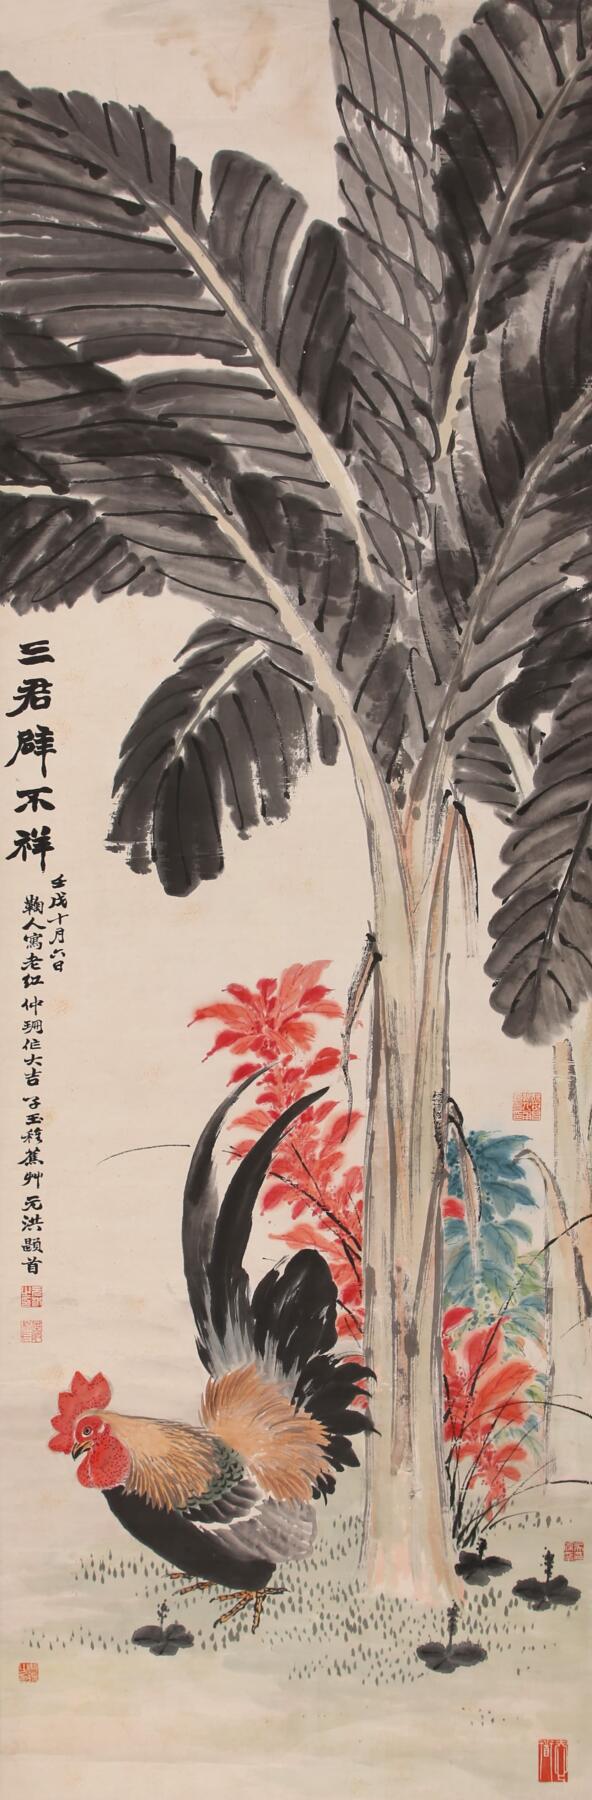 三君辟不祥
壬戌十月六日
鞠人寫老红 仲珊作大吉 子玉移蕉艸 元洪題首